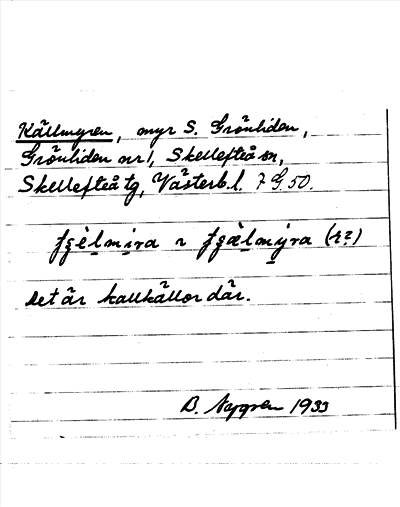 Källmyren, myr S. Grönliden,
Grönliden nr 1, Skellefteå sn,
Skellefteå tg, Västerb. l. 7 G, 50.
Det är kallkällor där.
B. Nygren 1933